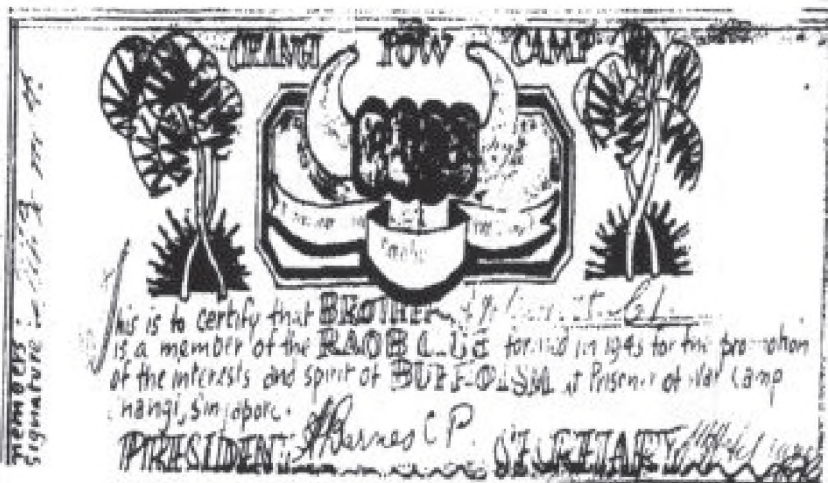 CHANGI POW CAMP
This is to certify that BROTHER
is a member of the RAOB CLUB formed in 1945 for the promotion
of the interests and spirit of BUFFOISM at Prisoner of War Camp
Changi, Singapore.
PRESIDENT Barnes C.P. SECRETARY
members
signature: